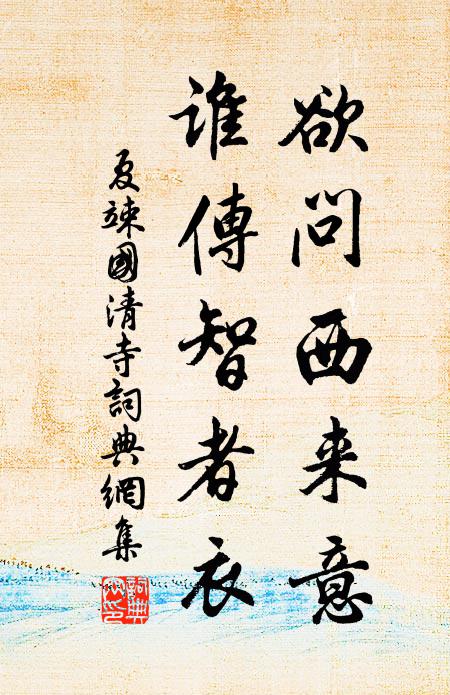 欲问西来意
谁傳智者衣
夏竦國清寺詞典網集